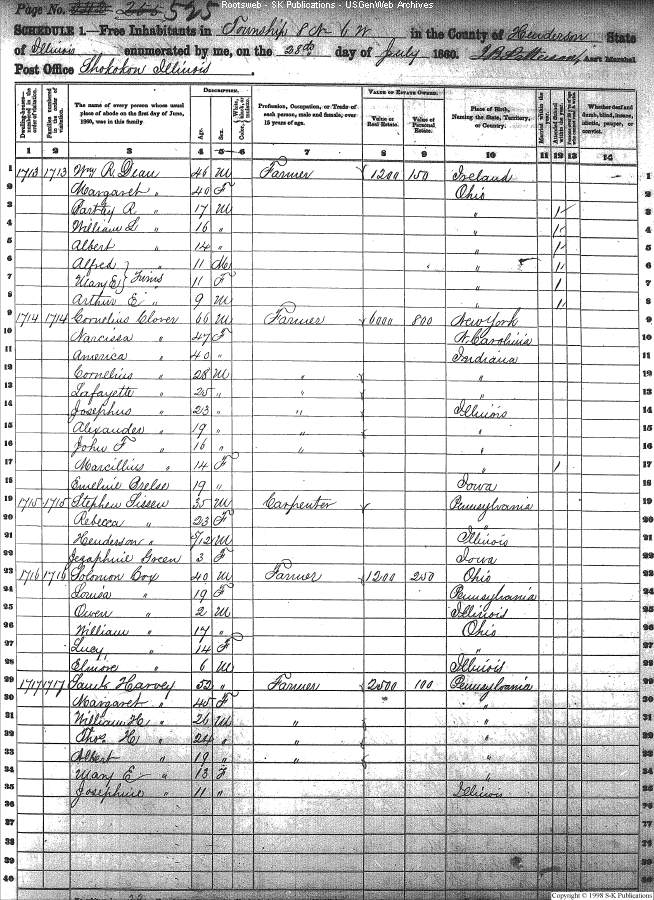 Rootsweb - SK Publications - USGenWeb Archives
Page No. 525
SCHEDULE 1.—Free Inhabitants in Township 8 N 6 W in the County of Henderson State
of Illinois enumerated by me, on the 28th day of July 1860. Ass't Marshal
Post Office Shokokon Illinois.
Dwelling-houses—numbered in the order of visitation.
Families numbered in the order of visitation.
The name of every person whose usual place of abode on the first day of June, 1860, was in this family.
DESCRIPTION.
Age.
Sex.
Color,
Profession, Occupation, or Trade of each person, male and female, over 15 years of age.
VALUE OF ESTATE OWNED.
Value of Real Estate.
Value of Personal Estate.
Place of Birth, Naming the State, Territory, or Country.
Married within the year.
Attended School within the year.
Whether deaf and dumb, blind, insane, idiotic, pauper, or convict.
1 2 3 4 5 6 7 8 9 10 11 12 13 14
1 1713 1713 Wm R. Dean 46 M Farmer 1200 150 Ireland 1
2 Margaret " 40 F Ohio 2
3 R " 17 M " 1 3
4 William L " 16 " " 1 4
5 Albert " 14 " " 1 5
6 Alfred } " 11 M " 1 6
7 Mary E } Twins " 11 F " 1 7
8 Arthur E " 9 M " 1 8
9 1714 1714 Cornelius Clover 66 M Farmer 6000 800 New York 9
10 Narcissa " 47 F N. Carolinia 10
11 America " 40 " Indiana 11
12 Cornelius " 28 M " " 12
13 Lafayette " 25 " " " 13
14 Josephus " 23 " " Illinois 14
15 Alexander " 19 " " " 15
16 John F " 16 " " " 16
17 Marcillius " 14 F " 1 17
18 Emeline 19 " Iowa 18
19 1715 1715 Stephen 35 M Carpenter Pennsylvania 19
20 Rebecca " 23 F " 20
21 Henderson " 9/12 M Illinois 21
22 Green 3 F Iowa 22
23 1716 1716 Solomon Cox 40 M Farmer 1200 250 Ohio 23
24 Louisa " 19 F Pennsylvania 24
25 Owen " 2 M Illinois 25
26 William " 17 " Ohio 26
27 Lucy " 14 F " 27
28 Elmore " 6 M Illinois 28
29 1717 1717 Harvey 52 " Farmer 2500 100 Pennsylvania 29
30 Margaret " 45 F " 30
31 William H " 26 M " " 31
32 Thos. H " 24 " " " 32
33 Albert " 19 " " " 33
34 Mary E " 13 F " 34
35 Josephine " 11 " Illinois 35
36 36
37 37
38 38
39 39
40 40
Copyright © 1998 S-K Publications